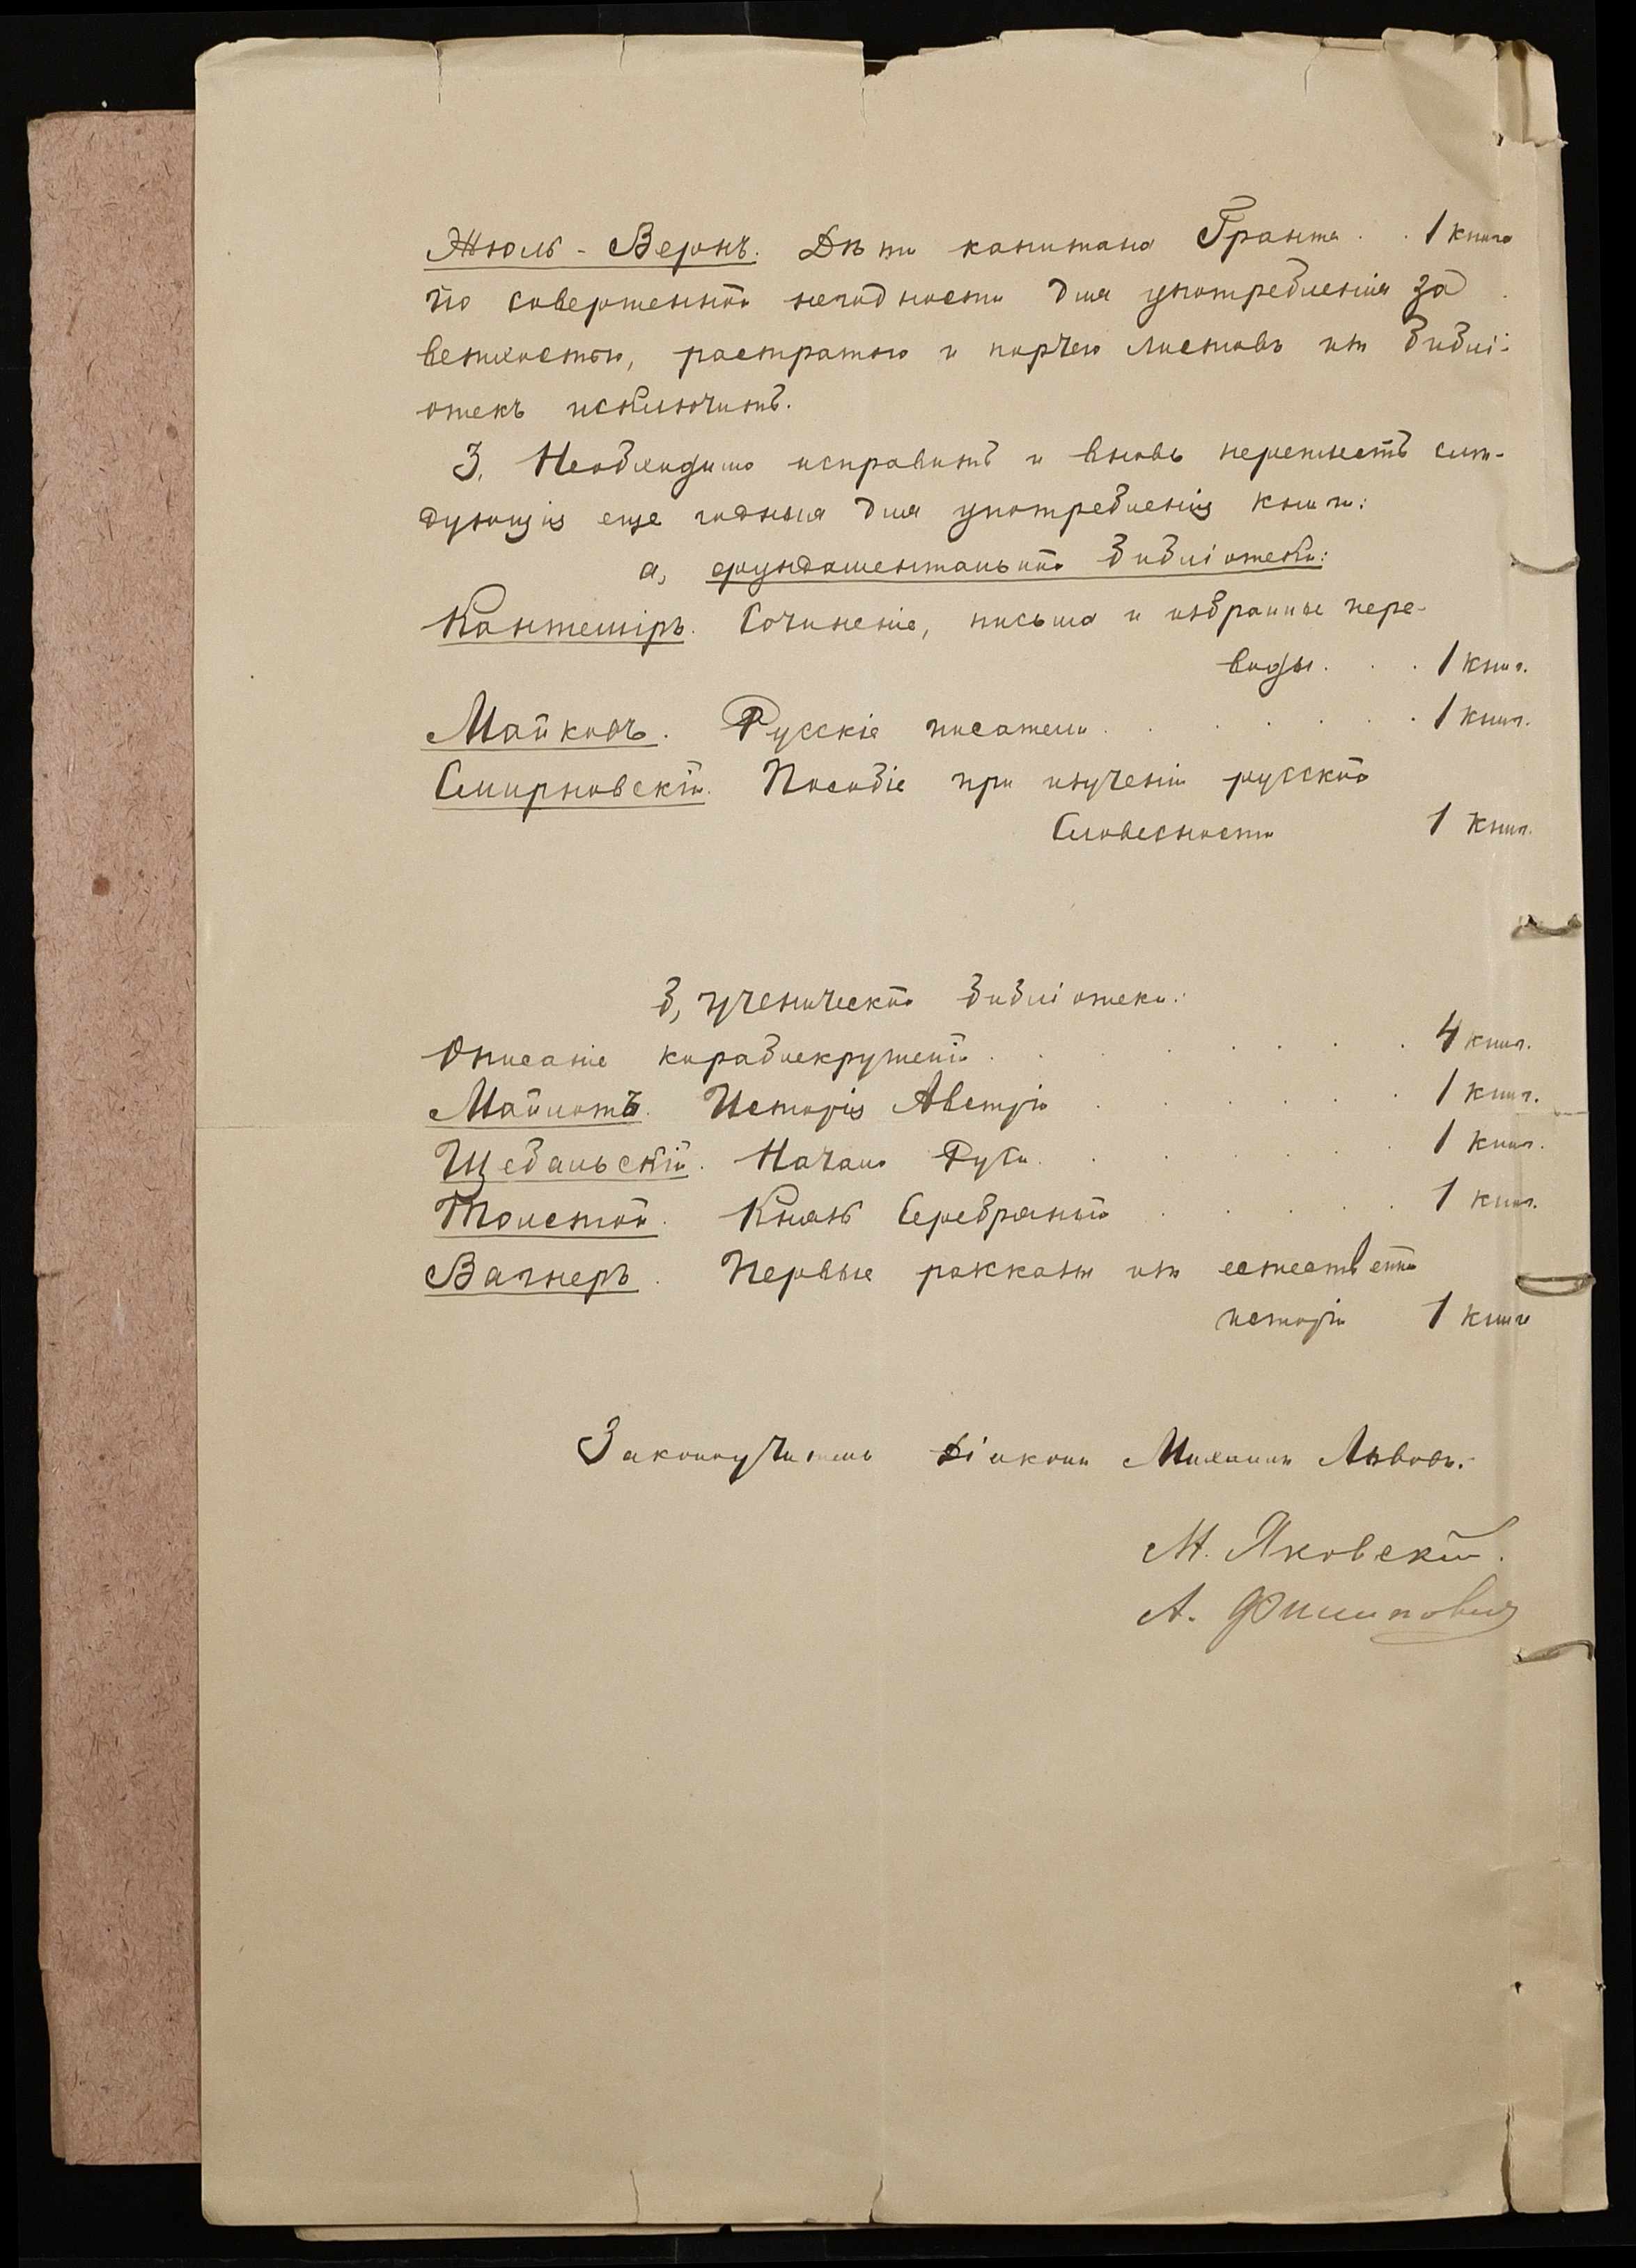 Жюль-Вернъ. Дѣти капитана Гранта . . 1 книга
по совершенной негодности для употребленія за
ветхостью, растратою и порчею листовъ изъ библі-
отекъ исключить.
3, Необходимо исправить и вновь переплесть слѣ-
дующія еще годныя для употребленія книги:
а, фундаментальной библіотеки:
Кантеміръ. Сочиненіе, письма и избранные пере-
воды . . . 1 книг.
Майковъ. Русскіе писатели . . . . . . . 1 книг.
Смирновскій. Пособіе при изученіи русской
Словесности 1 книг.
б, ученической библіотеки:
Описаніе кораблекрушеній . . . . . . . . 4 книг.
Майлотъ. Исторія Австріи . . . . . . 1 книг.
Щебальскій. Начало Руси . . . . . . 1 книг.
Толстой. Князь Серебряный . . . . . 1 книг.
Вагнеръ. Первые разсказы изъ естественной
исторіи 1 книга
Законоучитель Діаконъ Михаилъ Львовъ.
М. Яковскій.
А. Филиповичъ